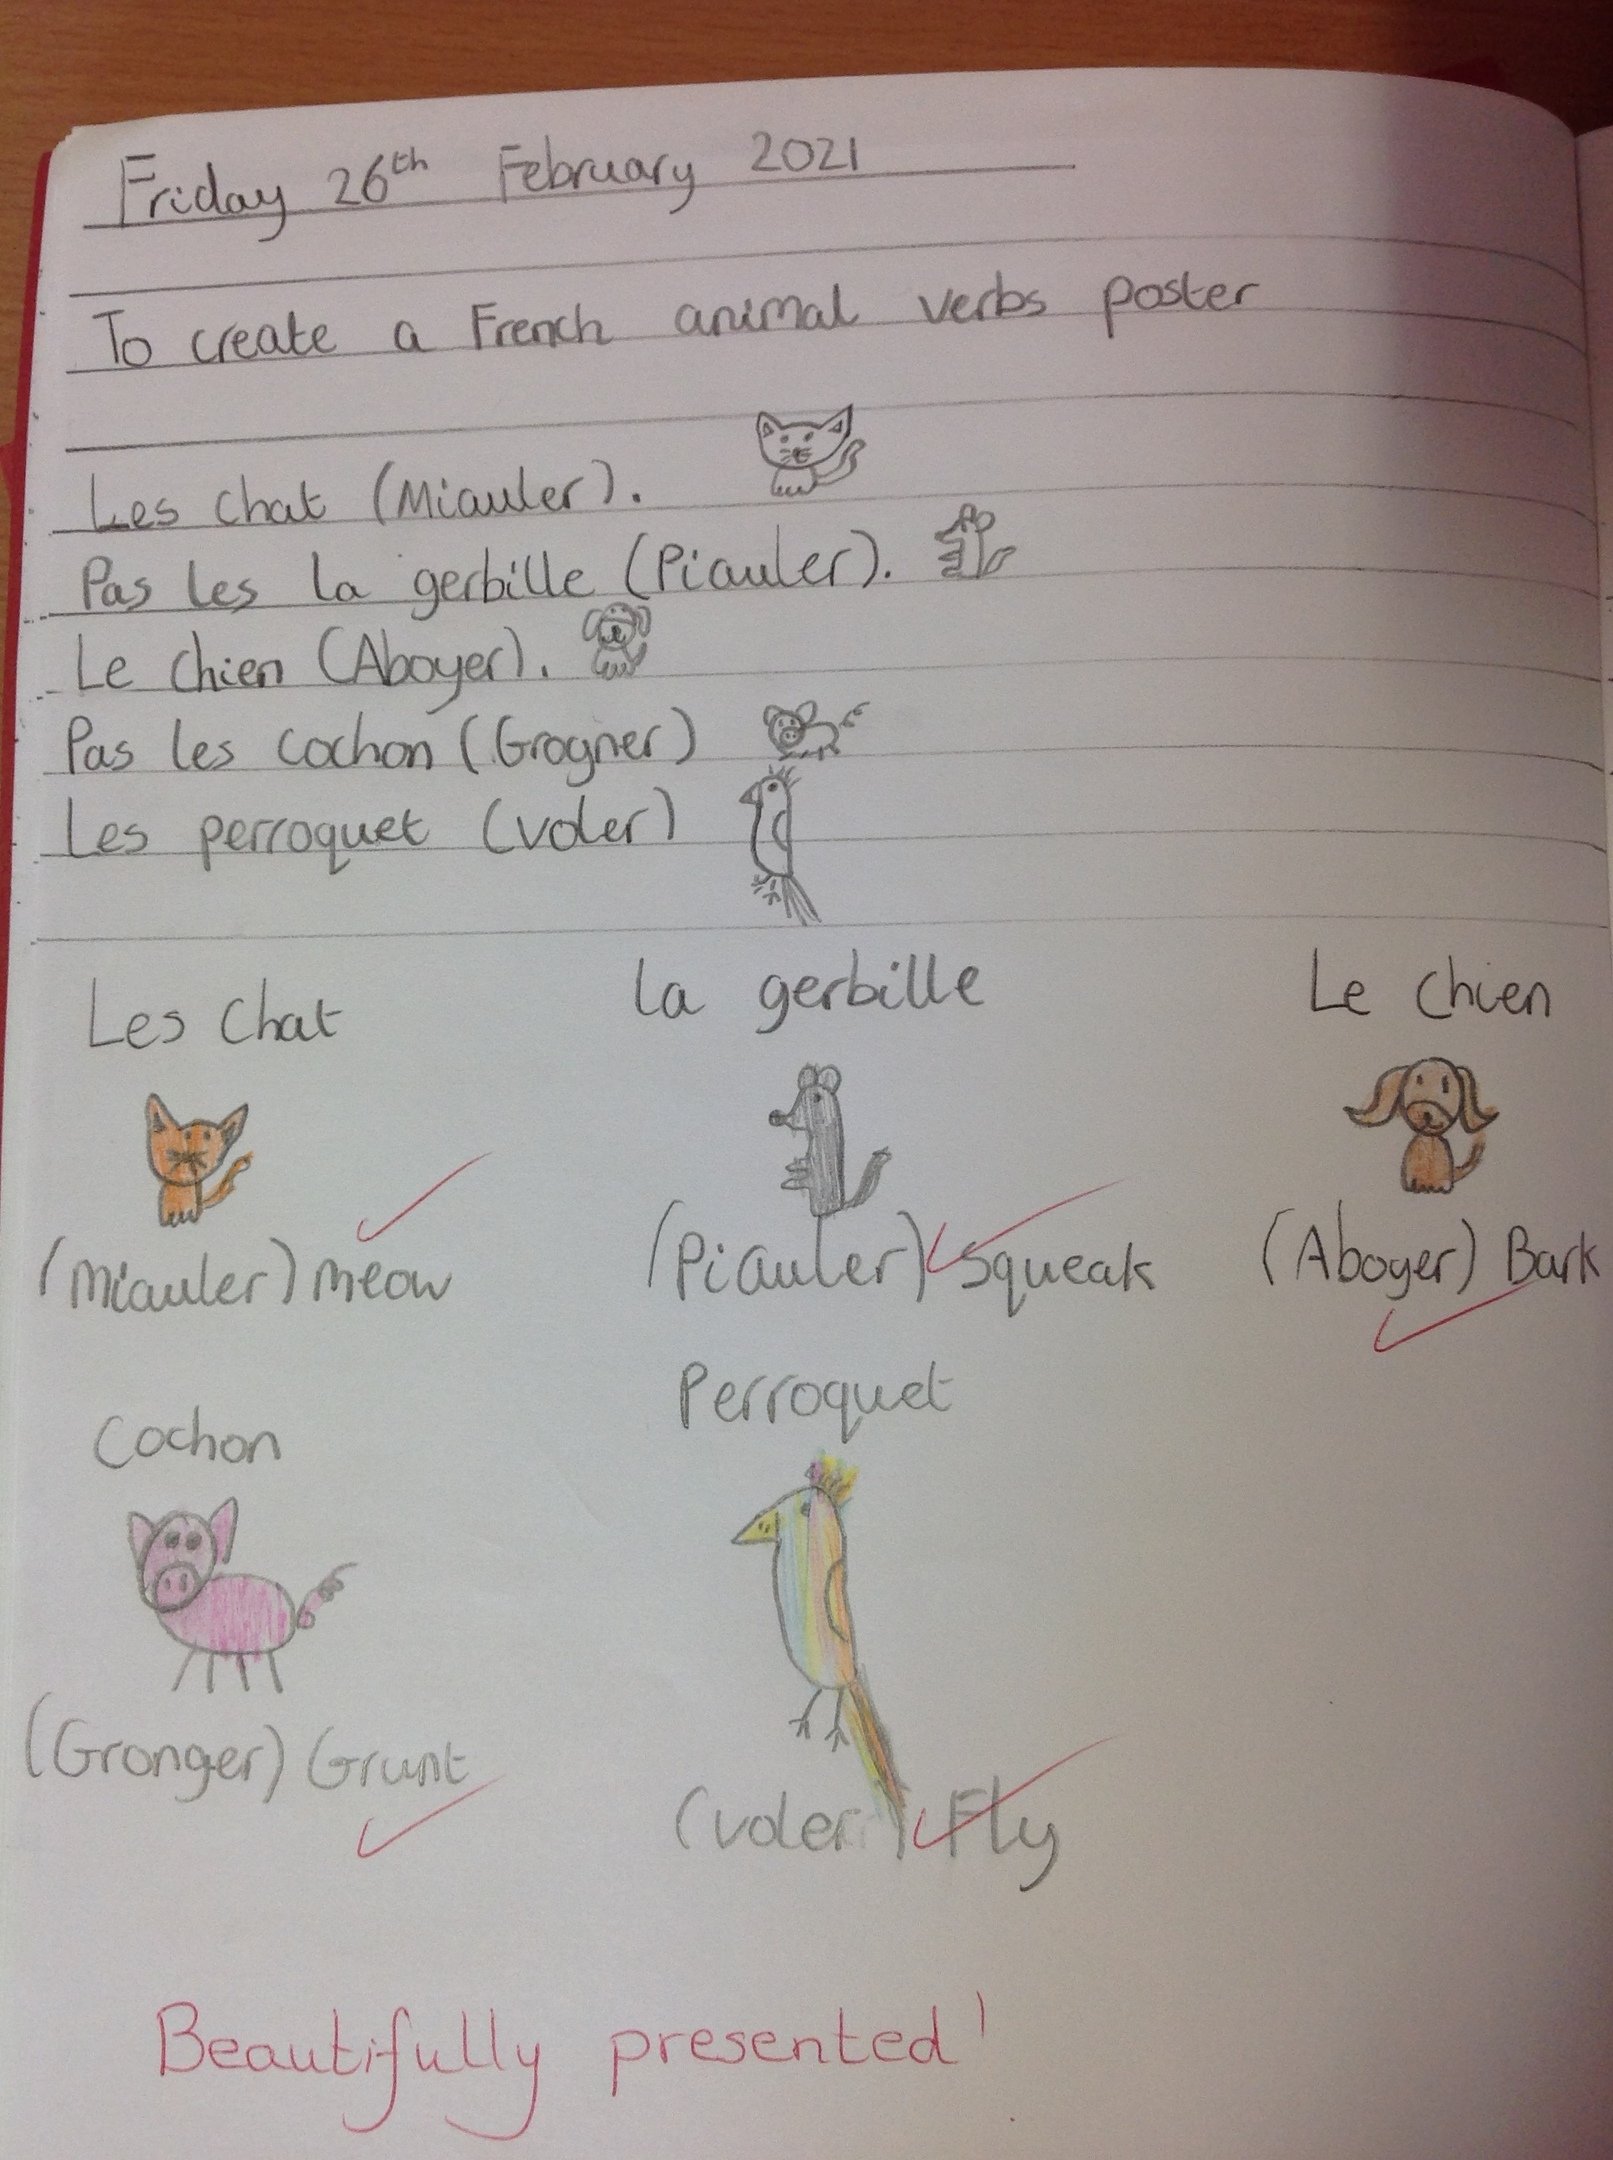 Friday 26th February 2021
To create a French animal verbs poster
Les chat (Miauler).
Pas les la gerbille (Piauler).
Le chien (Aboyer).
Pas les cochon (Grogner)
Les perroquet (voler)
Les chat
la gerbille
Le chien
(Miauler) meow
(Piauler) Squeak
(Aboyer) Bark
Cochon
Perroquet
(Gronger) Grunt
(voler) Fly
Beautifully presented!